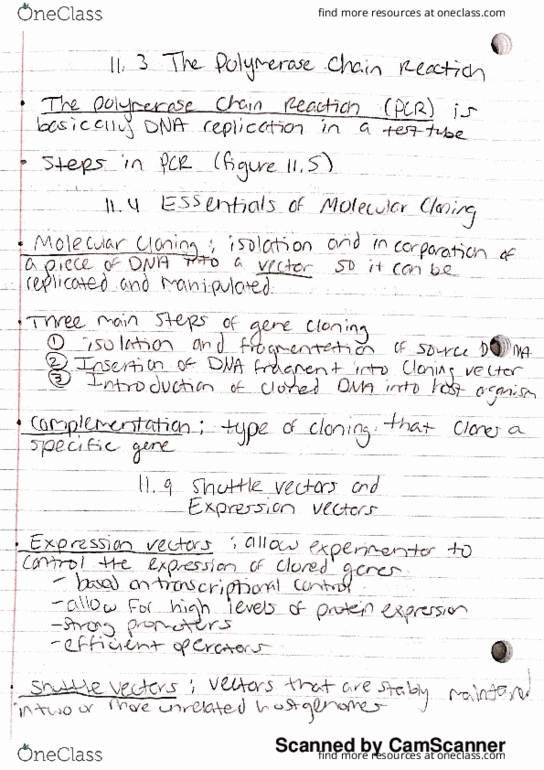 OneClass
find more resources at oneclass.com
11.3 The Polymerase Chain Reaction
• The Polymerase Chain Reaction (PCR) is
basically DNA replication in a test tube
• Steps in PCR (figure 11.5)
11.4 Essentials of Molecular Cloning
• Molecular Cloning ; isolation and incorporation of
a piece of DNA into a vector so it can be
replicated and manipulated
• Three main steps of gene cloning
① isolation and fragmentation of source DNA
② Insertion of DNA fragment into Cloning vector
③ Introduction of cloned DNA into host organism
• Complementation ; type of cloning that clones a
specific gene
11.9 Shuttle vectors and
Expression vectors
• Expression vectors ; allow experimenter to
control the expression of cloned genes
- based on transcriptional control
- allow for high levels of protein expression
- strong promoters
- efficient operators
• Shuttle vectors ; vectors that are stably maintained
in two or more unrelated host genomes
Scanned by CamScanner
OneClass
find more resources at oneclass.com